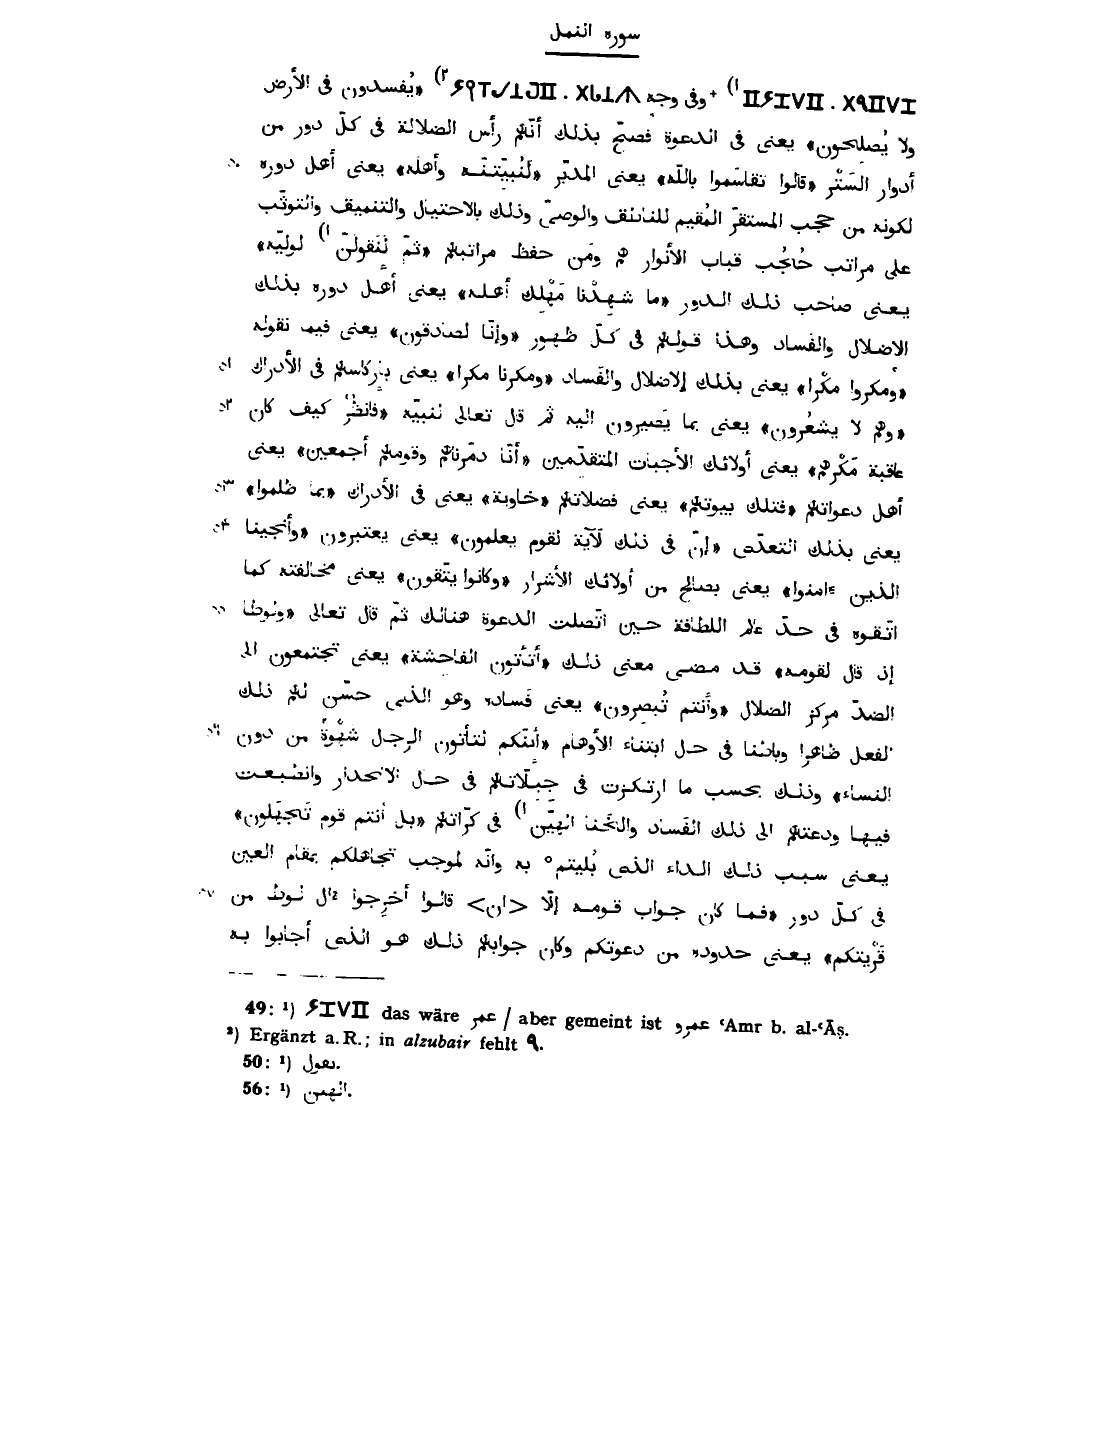 سورة النمل
⁺ وفى وجه «يُفسدون فى الأرض
ولا يُصلحون» يعنى فى الدعوة فصحّ بذلك أنّهم رأس الضلالة فى كلّ دور من
أدوار السَتْر «قالوا تقاسَموا بالله» يعنى المدبّر «لَنُبيّتنّه وأهله» يعنى أهل دوره ٥٠
لكونه من حجب المستقرّ المُقيم للناطق والوصىّ وذلك بالاحتيال والتنميق والتوثّب
على مراتب حُجُب قباب الأنوار هم ومَن حفظ مراتبهم «ثمّ لَنَقولنّ ١) لوليّه»
يعنى صاحب ذلك الدور «ما شهِدْنا مَهْلِك أهله» يعنى أهل دوره بذلك
الإضلال والفساد وهذا قولهم فى كلّ ظهور «وإنّا لصادقون» يعنى فيما نقوله
«ومكروا مكْرا» يعنى بذلك الإضلال والفساد «ومكرنا مكرا» يعنى بإركاسهم فى الأدراك ٥١
«وهم لا يشعُرون» يعنى بما يَصيرون اليه ثم قال تعالى لنبيّه «فانظُرْ كيف كان ٥٢
عاقبة مَكْرهم» يعنى أولائك الأجبات المتقدّمين «أنّا دمّرناهم وقومهم أجمعين» يعنى
أهل دعواتهم «فتلك بيوتهم» يعنى فضلاتهم «خاوية» يعنى فى الأدراك «بما ظلموا» ٥٣
يعنى بذلك التعدّى «إنّ فى ذلك لَآية لقوم يعلمون» يعنى يعتبرون «وأنجينا ٥۴
الذين ءامنوا» يعنى بصالح من أولائك الأشرار «وكانوا يتّقون» يعنى مخالفته كما
اتّقوه فى حدّ عالم اللطافة حين اتّصلت الدعوة هنالك ثمّ قال تعالى «ولوطا ٥٥
إذ قال لقومه» قد مضى معنى ذلك «أتأتون الفاحشة» يعنى تجتمعون الى
الضدّ مركز الضلال «وأنتم تُبصِرون» يعنى فَساده وهو الذى حسّن لهم ذلك
الفعل ظاهرا وباطنا فى حال ابتناء الأوهام «أئنّكم لتأتون الرجال شهْوةً من دون ٥٦
النساء» وذلك بحسب ما ارتكزت فى جبِلّاتهم فى حال الانحدار وانطبعت
فيها ودعتهم الى ذلك الفساد والخَنا ١) فى كرّاتهم «بل أنتم قوم تَجهَلون»
يعنى سبب ذلك الداء الذى بُليتم° به وانّه لموجب تجاهلكم بمقام العين
فى كلّ دور «فما كان جواب قومه إلّا <ان> قالوا أخرِجوا ءال لوط من ٥٧
قَرْيتكم» يعنى حدوده من دعوتكم وكان جوابهم ذلك هو الذى أجابوا به
49: ¹) das wäre عمر / aber gemeint ist عمرو ʿAmr b. al-ʿĀṣ.
²) Ergänzt a. R.; in alzubair fehlt
50: ¹) ٮعول.
56: ¹) انهىىں.